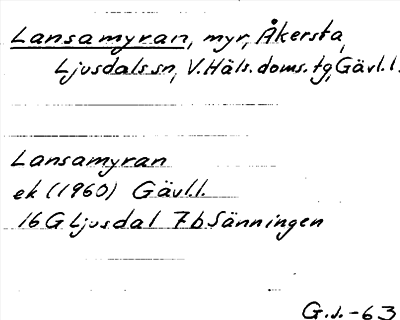 Lansamyran, myr, Åkersta,
Ljusdals sn, V. Häls. doms. tg, Gävl. l.
Lansamyran
ek (1960) Gävl. l.
16 G Ljusdal 7b Sänningen
G. J. -63